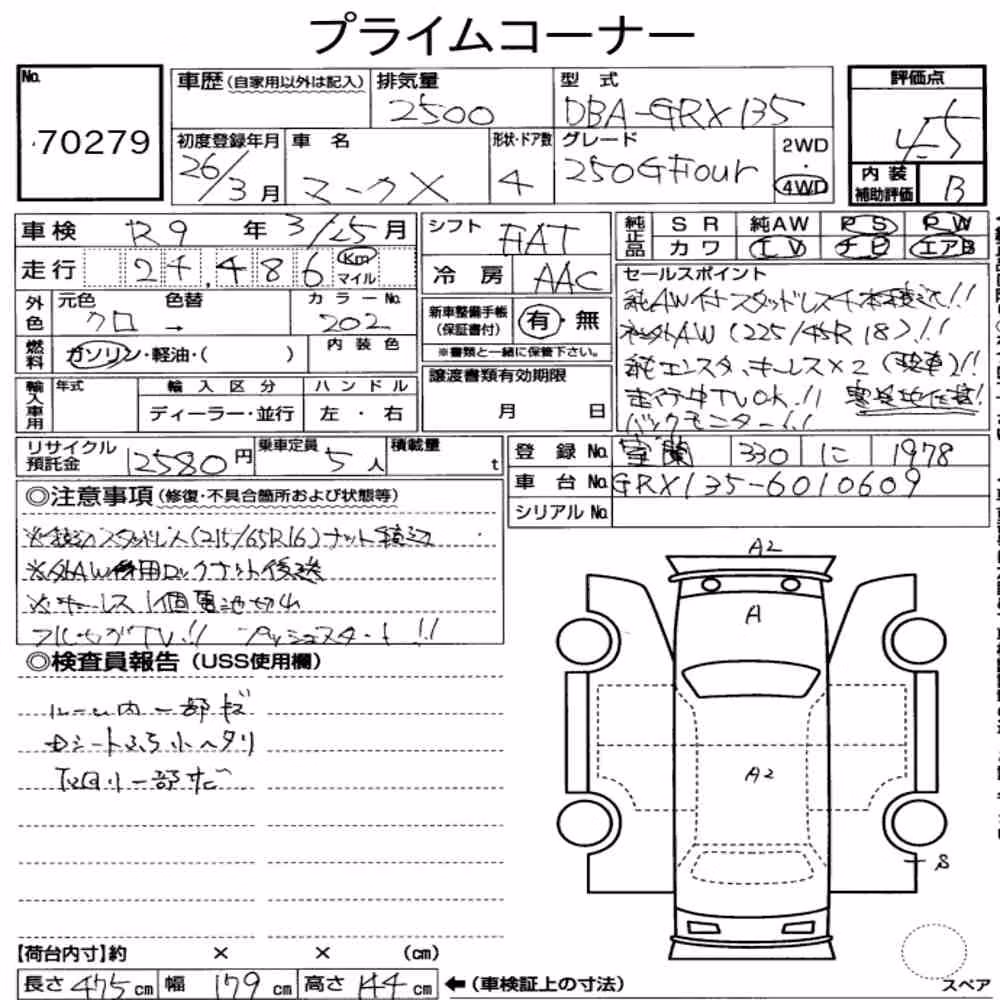 プライムコーナー
No.
70279
車歴(自家用以外は記入)
排気量
2500
型式
DBA-GRX135
評価点
4.5
初度登録年月
26/3月
車名
マークX
形状・ドア数
4
グレード
250G Four
2WD
・
4WD
内装
補助評価
B
車検 R9年3/25月
シフト FAT
純正品
SR 純AW PS PW
カワ TV ナビ エアB
走行 24,486 Km マイル
冷房 AAC
セールスポイント
純AW付スタッドレス4本積込!!
社外AW(225/45R18)!!
純エンスタ、キーレス×2(駐車)!!
走行中TVOK!! 寒冷地仕様!
バックモニター!!
外色
元色 色替 カラーNo.
クロ → 202
新車整備手帳
(保証書付)
有・無
※書類と一緒に保管下さい。
燃料
ガソリン・軽油・( )
内装色
輸入車用
年式 輸入区分 ハンドル
ディーラー・並行 左・右
譲渡書類有効期限
月 日
リサイクル
預託金
12580円
乗車定員 5人
積載量 t
登録No. 室蘭 330 に 1978
車台No. GRX135-6010609
シリアルNo.
◎注意事項(修復・不具合箇所および状態等)
※積込スタッドレス(215/65R16)ナット積込
※外AW併用ロックナット後送
※キーレス1個電池切れ
フルセグTV!! プッシュスタート!!
◎検査員報告(USS使用欄)
ルーム内一部キズ
Dシートふち小ヘタリ
下回り一部サビ
A2
A
A2
S
【荷台内寸】約 × × (cm)
長さ 475cm 幅 179cm 高さ 144cm ←(車検証上の寸法)
スペア